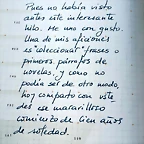 Pues no había visto
antes este interesante
hilo. Me uno con gusto.
Una de mis aficiones
es "coleccionar" frases o
primeros párrafos de
novelas, y como no
podía ser de otro modo,
hoy comparto con uste
des ese maravilloso
comienzo de Cien años
de soledad.